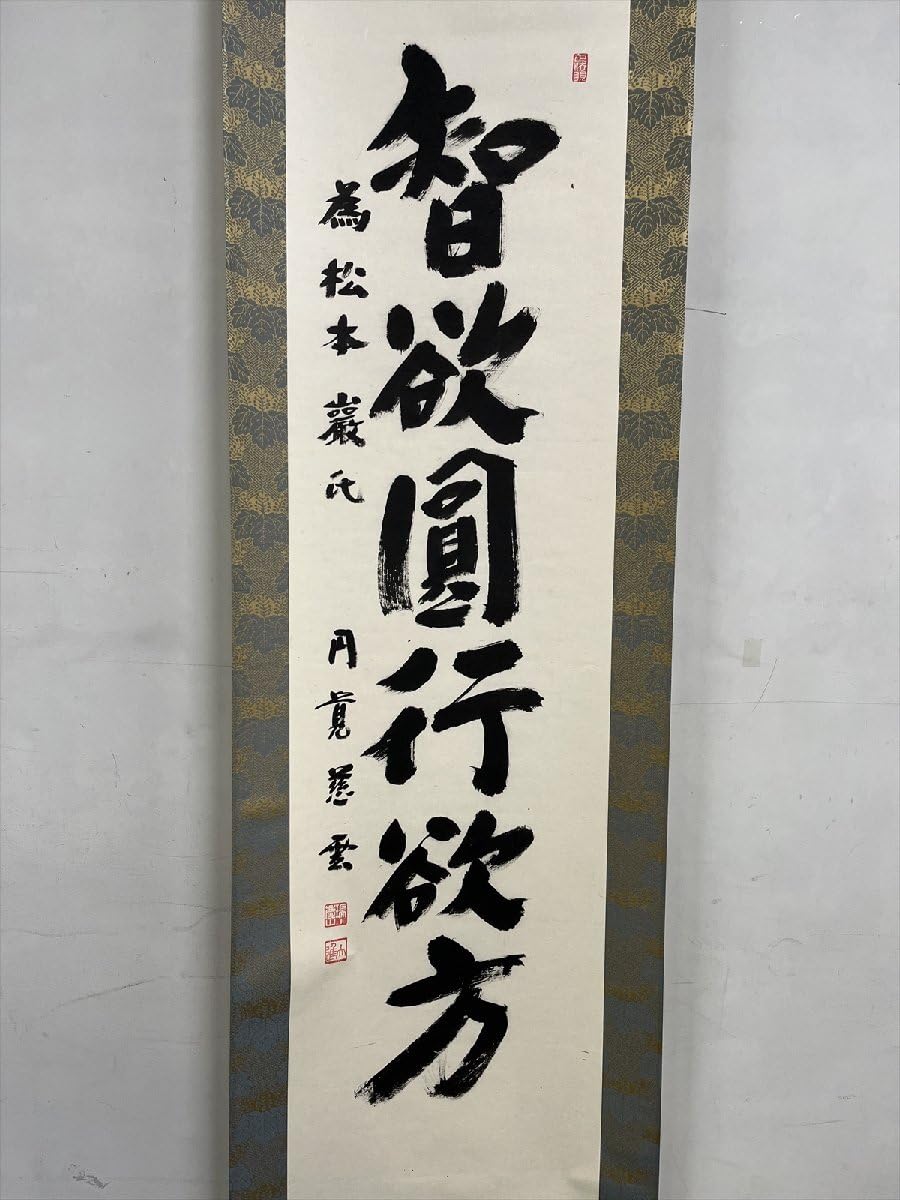 智欲圓行欲方
為松本巖氏
円覚慈雲